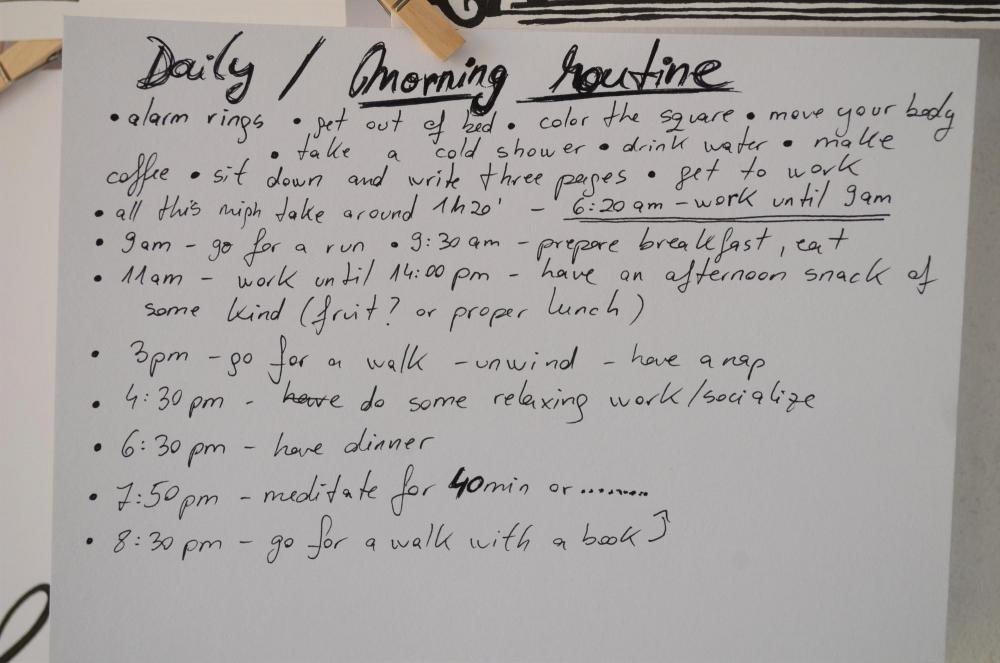 Daily / morning routine
• alarm rings • get out of bed • color the square • move your body
• take a cold shower • drink water • make
coffee • sit down and write three pages • get to work
• all this migh take around 1h20' - 6:20 am - work until 9am
• 9am - go for a run • 9:30 am - prepare breakfast, eat
• 11am - work until 14:00 pm - have an afternoon snack of
some kind (fruit? or proper lunch)
• 3pm - go for a walk - unwind - have a nap
• 4:30 pm - have do some relaxing work/socialize
• 6:30 pm - have dinner
• 7:50 pm - meditate for 40min or ........
• 8:30 pm - go for a walk with a book